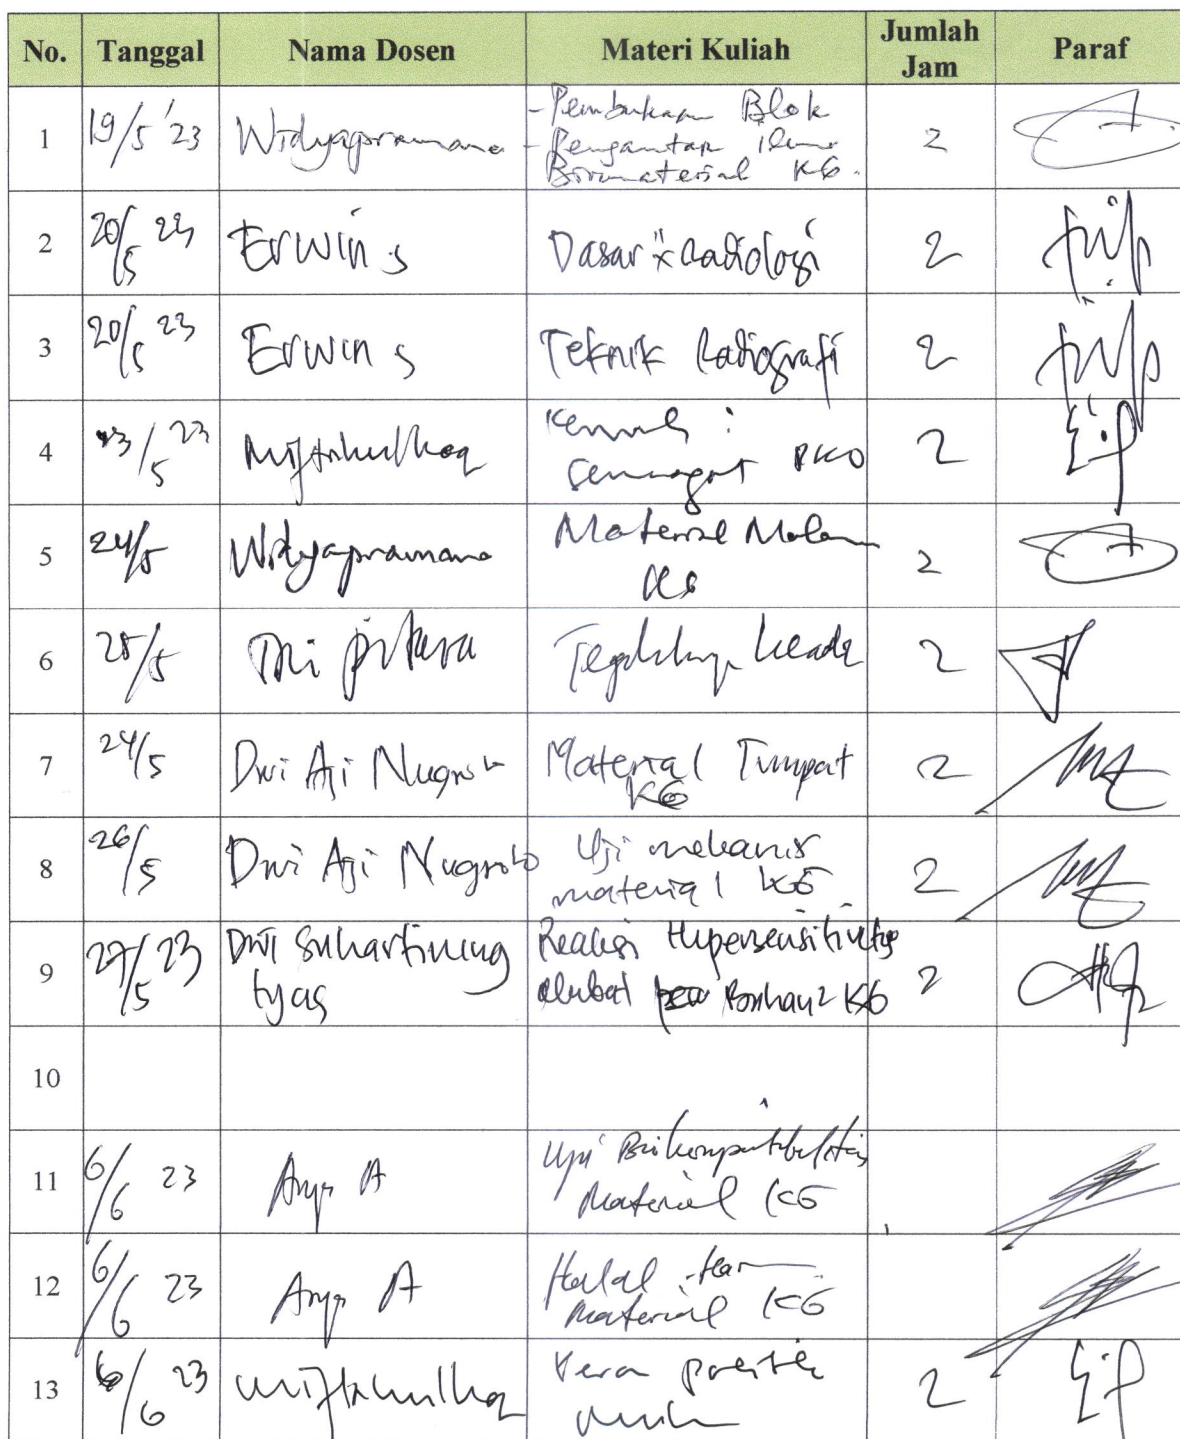 No. Tanggal Nama Dosen Materi Kuliah Jumlah Jam Paraf
1 19/5 '23 Widyapramana - Pembukaan Blok 2
- Pengantar ilmu
Biomaterial KG.
2 20/5 23 Erwin S Dasar" Radiologi 2
3 20/5 23 Erwin S Teknik Radiografi 2
4 23/5 23 Miftahulhaq 2
5 24/5 Widyapramana Material 2
KG
6 25/5 Tri 2
7 24/5 Dwi Aji Nugroho Material Tumpat 2
KG
8 26/5 Dwi Aji Nugroho Uji mekanis 2
material KG
9 27/5 23 Dwi Suhartining Reaksi Hipersensitivitas 2
tyas akibat Bahan2 KG
10
11 6/6 23 Arya A Uji Biokompatibilitas
Material KG
12 6/6 23 Arya A Halal
Material KG
13 6/6 23 Miftahulhaq 2